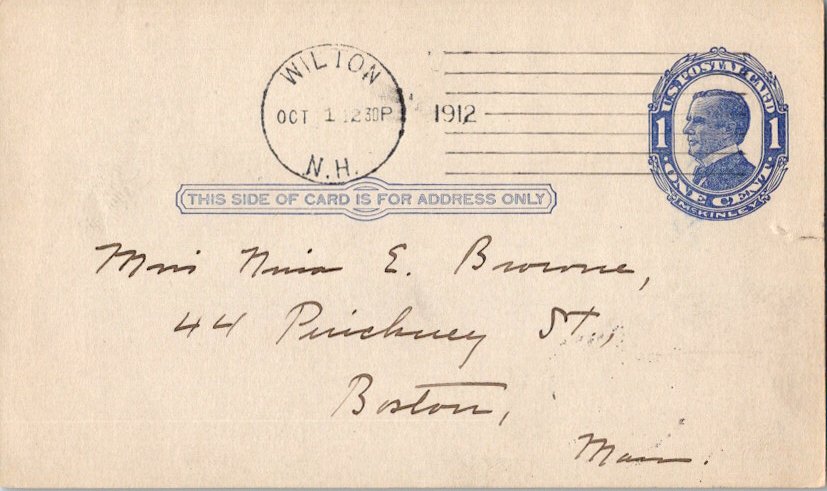 WILTON
OCT 1 1230P
N.H.
1912
U.S. POSTAL CARD
1 1
ONE CENT
McKINLEY
THIS SIDE OF CARD IS FOR ADDRESS ONLY
Miss Nina E. Browne,
44 Pinckney St.,
Boston,
Mass.